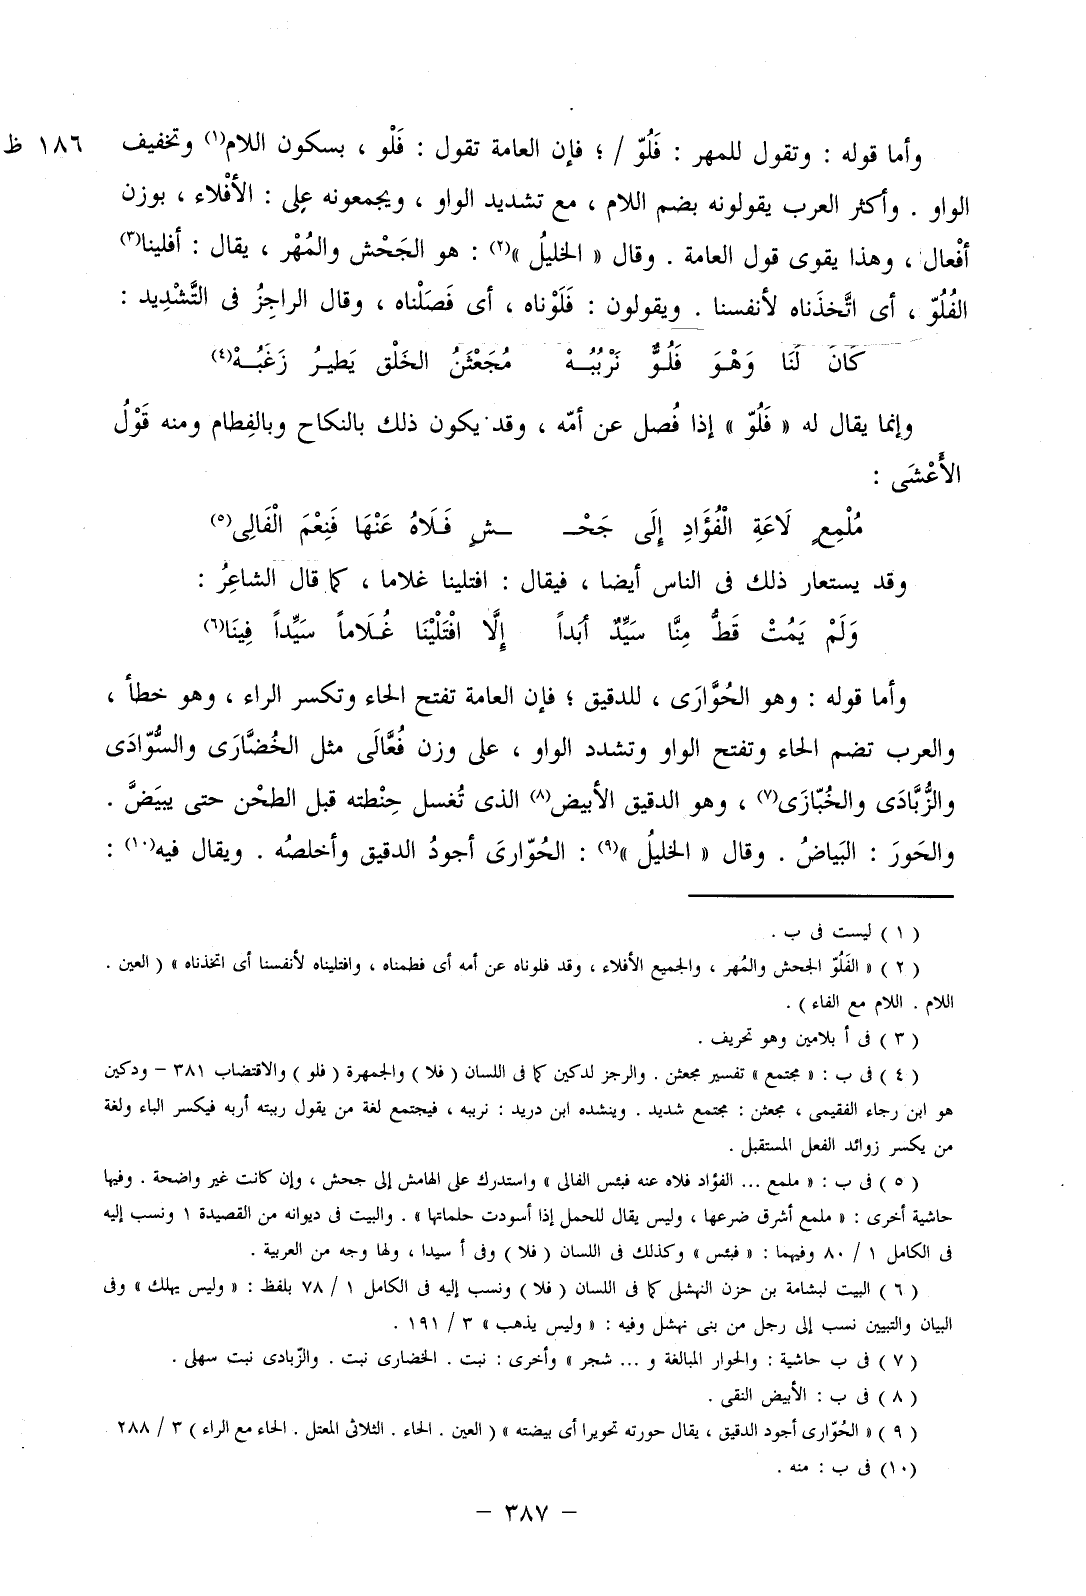 وأما قوله : وتقول للمهر : فَلُوّ / ؛ فإن العامة تقول : فَلْو ، بسكون اللام(١) وتخفيف ١٨٦ ظ
الواو . وأكثر العرب يقولونه بضم اللام ، مع تشديد الواو ، ويجمعونه على : الأفْلاء ، بوزن
أفْعال ، وهذا يقوى قول العامة . وقال « الخليلُ »(٢) : هو الجَحْش والمُهْر ، يقال : أفلينا(٣)
الفُلُوّ ، أى اتَّخذَناه لأنفسنا . ويقولون : فَلَوْناه ، أى فَصَلْناه ، وقال الراجِزُ فى التَّشْدِيد :
كَانَ لَنَا وَهْوَ فَلُوٌّ نَرْبُبُهْ مُجَعْثَنُ الخَلْق يَطيرُ زَغَبُهْ(٤)
وإنما يقال له « فَلُوّ » إذا فُصل عن أمّه ، وقد يكون ذلك بالنكاح وبالفِطام ومنه قَوْلُ
الأَعْشَى :
مُلْمِعٍ لَاعَةِ الْفُؤَادِ إِلَى جَحْـ ـشٍ فَلَاهُ عَنْهَا فَنِعْمَ الْفَالِى(٥)
وقد يستعار ذلك فى الناس أيضا ، فيقال : افتلينا غلاما ، كما قال الشاعِرُ :
وَلَمْ يَمُتْ قَطُّ مِنَّا سَيِّدٌ أبَداً إِلَّا افْتَلَيْنَا غُلَاماً سَيِّداً فِينَا(٦)
وأما قوله : وهو الحُوَّارَى ، للدقيق ؛ فإن العامة تفتح الحاء وتكسر الراء ، وهو خطأ ،
والعرب تضم الحاء وتفتح الواو وتشدد الواو ، على وزن فُعَّالَى مثل الخُضَّارَى والسُّوّادَى
والزُّبَّادَى والخُبّازَى(٧) ، وهو الدقيق الأبيض(٨) الذى تُغسل حِنْطته قبل الطحْن حتى يبيَضَّ .
والحَورَ : البَياضُ . وقال « الخليلُ »(٩) : الحُوّارىَ أجودُ الدقيق وأخلصُه . ويقال فيه(١٠) :
( ١ ) ليست فى ب .
( ٢ ) « الفَلُوّ الجحش والمُهر ، والجميع الأفلاء ، وقد فلوناه عن أمه أى فطمناه ، وافتليناه لأنفسنا أى اتخذناه » ( العين .
اللام . اللام مع الفاء ) .
( ٣ ) فى أ بلامين وهو تحريف .
( ٤ ) فى ب : « مجتمع » تفسير مجعثن . والرجز لدكين كما فى اللسان ( فلا ) والجمهرة ( فلو ) والاقتضاب ٣٨١ – ودكين
هو ابن رجاء الفقيمى ، مجعثن : مجتمع شديد . وينشده ابن دريد : نرببه ، فيجتمع لغة من يقول رببته أربه فيكسر الباء ولغة
من يكسر زوائد الفعل المستقبل .
( ٥ ) فى ب : « ملمع ... الفؤاد فلاه عنه فبئس الفالى » واستدرك على الهامش إلى جحش ، وإن كانت غير واضحة . وفيها
حاشية أخرى : « ملمع أشرق ضرعها ، وليس يقال للحمل إذا أسودت حلماتها » . والبيت فى ديوانه من القصيدة ١ ونسب إليه
فى الكامل ١ / ٨٠ وفيهما : « فبئس » وكذلك فى اللسان ( فلا ) وفى أ سيدا ، ولها وجه من العربية .
( ٦ ) البيت لبشامة بن حزن النهشلى كما فى اللسان ( فلا ) ونسب إليه فى الكامل ١ / ٧٨ بلفظ : « وليس يهلك » وفى
البيان والتبيين نسب إلى رجل من بنى نهشل وفيه : « وليس يذهب » ٣ / ١٩١ .
( ٧ ) فى ب حاشية : والحوار المبالغة و ... شجر » وأخرى : نبت . الخضارى نبت . والزّبادى نبت سهلى .
( ٨ ) فى ب : الأبيض النقى .
( ٩ ) « الحُوّارى أجود الدقيق ، يقال حورته تحويرا أى بيضته » ( العين . الحاء . الثلاثى المعتل . الحاء مع الراء ) ٣ / ٢٨٨
(١٠) فى ب : منه .
– ٣٨٧ –